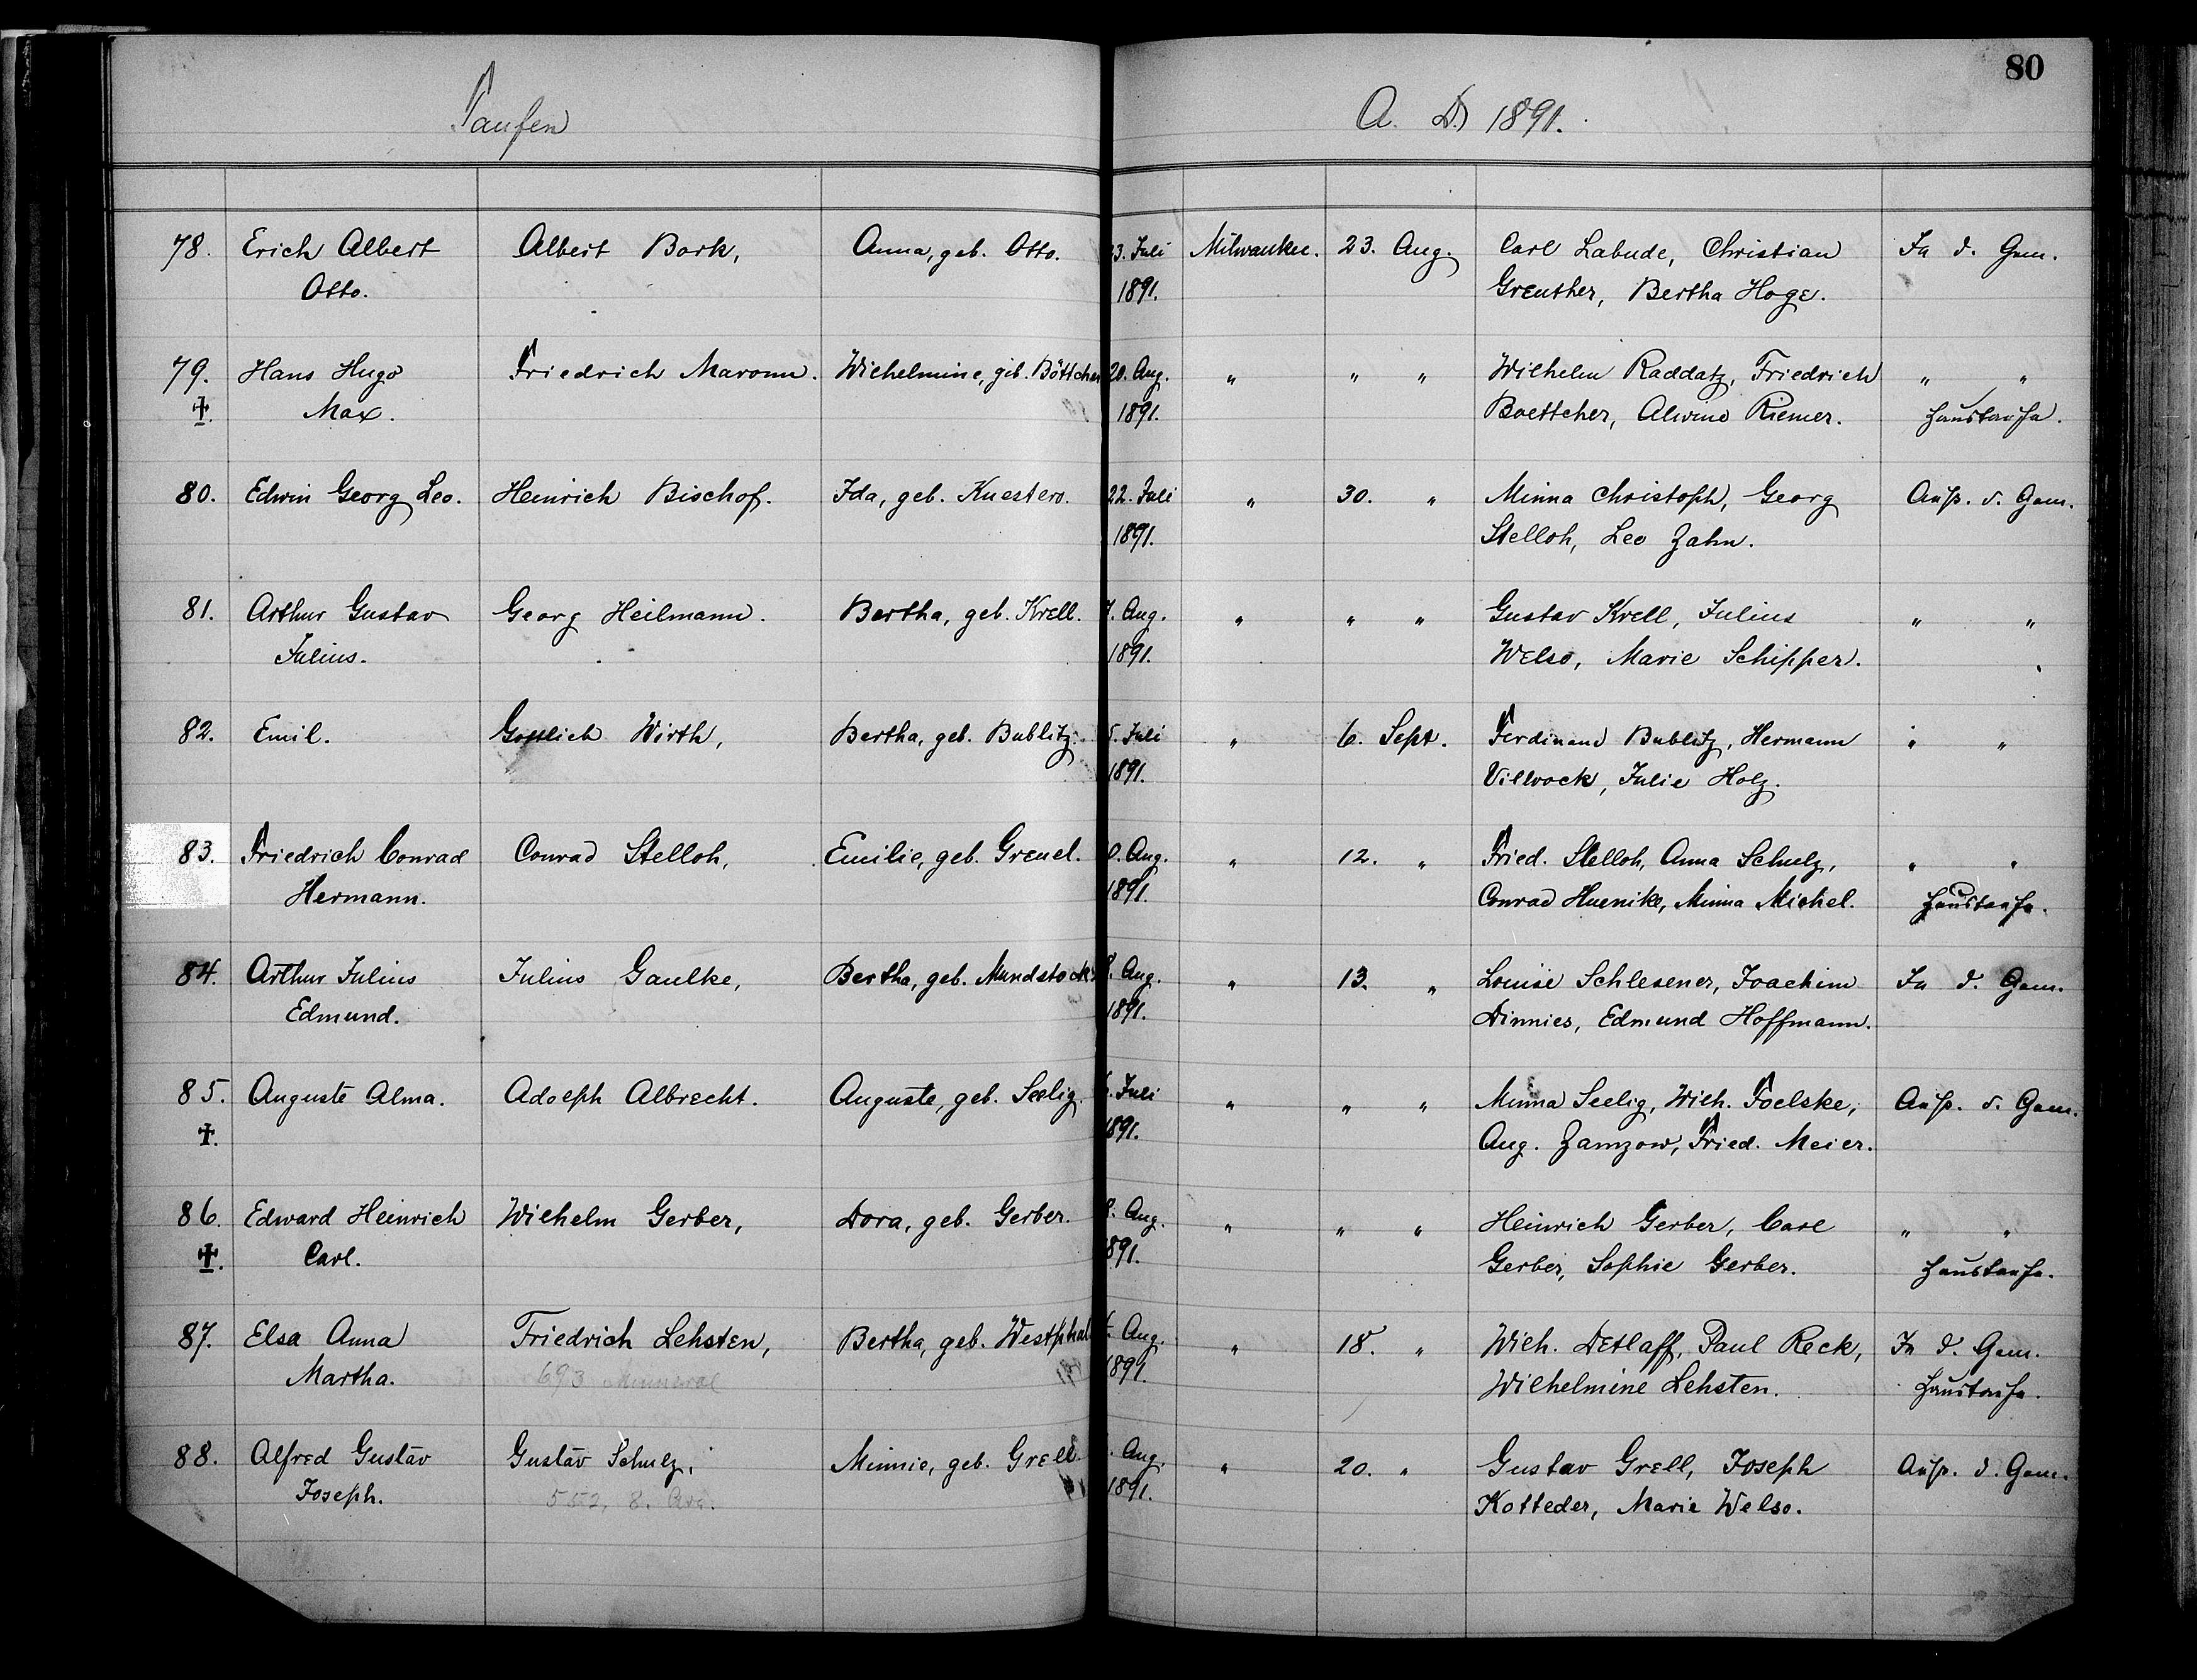 80
Taufen A. D. 1891.
78. Erich Albert Albert Bork, Anna, geb. Otto. 23. Juli Milwaukee. 23. Aug. Carl Labude, Christian In d. Gem.
Otto. 1891. Greuther, Bertha Hoge.
79. Hans Hugo Friedrich Maronn. Wilhelmine, geb. Böttcher 20. Aug. " " " Wilhelm Raddatz, Friedrich " "
Max. 1891. Boettcher, Alwine Riemer. Haustaufe.
80. Edwin Georg Leo. Heinrich Bischof. Ida, geb. Kuester. 22. Juli " 30. " Minna Christoph, Georg Auß. d. Gem.
1891. Stelloh, Leo Zahn.
81. Arthur Gustav Georg Heilmann. Bertha, geb. Krell. 7. Aug. " " " Gustav Krell, Julius " "
Julius. 1891. Welso, Marie Schipper.
82. Emil. Gottlieb Wirth, Bertha, geb. Bublitz. 5. Juli " 6. Sept. Ferdinand Bublitz, Hermann " "
1891. Villwock, Julie Holz.
83. Friedrich Conrad Conrad Stelloh, Emilie, geb. Greuel. 0. Aug. " 12. " Fried. Stelloh, Anna Schulz, " "
Hermann. 1891. Conrad Huenike, Minna Michel. Haustaufe.
84. Arthur Julius Julius Gaulke, Bertha, geb. Mundstock. 8. Aug. " 13. " Louise Schlesener, Joachim In d. Gem.
Edmund. 1891. Dinnies, Edmund Hoffmann.
85. Auguste Alma. Adolph Albrecht. Auguste, geb. Seelig. Juli " " " Minna Seelig, Wilh. Foelske, Auß. d. Gem.
†. 1891. Aug. Zamzow, Fried. Meier.
86. Edward Heinrich Wilhelm Gerber, Dora, geb. Gerber. 8. Aug. " " " Heinrich Gerber, Carl " "
Carl. 1891. Gerber, Sophie Gerber. Haustaufe.
87. Elsa Anna Friedrich Lehsten, Bertha, geb. Westphal Aug. " 18. " Wilh. Detlaff, Paul Reck, In d. Gem.
Martha. 693 1891. Wilhelmine Lehsten. Haustaufe.
88. Alfred Gustav Gustav Schulz, Minnie, geb. Grell. Aug. " 20. " Gustav Grell, Joseph Auß. d. Gem.
Joseph. 552, 8. Ave. 1891. Kotteder, Marie Welso.